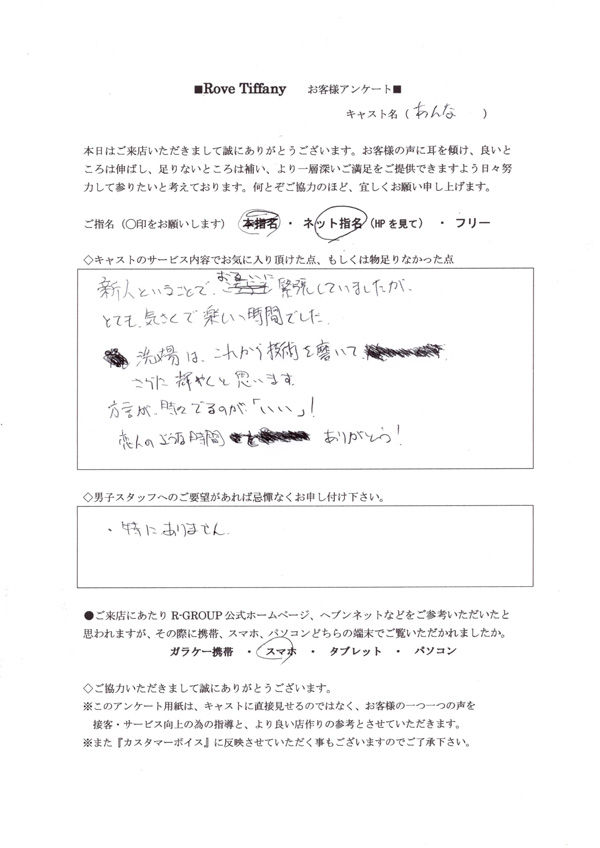 ■Rove Tiffany お客様アンケート■
キャスト名（ あんな ）
本日はご来店いただきまして誠にありがとうございます。お客様の声に耳を傾け、良いと
ころは伸ばし、足りないところは補い、より一層深いご満足をご提供できますよう日々努
力して参りたいと考えております。何とぞご協力のほど、宜しくお願い申し上げます。
ご指名（〇印をお願いします） 本指名 ・ ネット指名（HPを見て） ・ フリー
◇キャストのサービス内容でお気に入り頂けた点、もしくは物足りなかった点
新人ということで、おたがいに緊張していましたが、
とても、気さくで楽しい時間でした。
洗場は、これから技術を磨いて、
さらに輝やくと思います。
方言が、時々でるのが、「いい」！
恋人のような時間 ありがとう！
◇男子スタッフへのご要望があれば忌憚なくお申し付け下さい。
・特にありません。
●ご来店にあたり R-GROUP 公式ホームページ、ヘブンネットなどをご参考いただいたと
思われますが、その際に携帯、スマホ、パソコンどちらの端末でご覧いただかれましたか。
ガラケー携帯 ・ スマホ ・ タブレット ・ パソコン
◇ご協力いただきまして誠にありがとうございます。
※このアンケート用紙は、キャストに直接見せるのではなく、お客様の一つ一つの声を
接客・サービス向上の為の指導と、より良い店作りの参考とさせていただきます。
※また『カスタマーボイス』に反映させていただく事もございますのでご了承下さい。